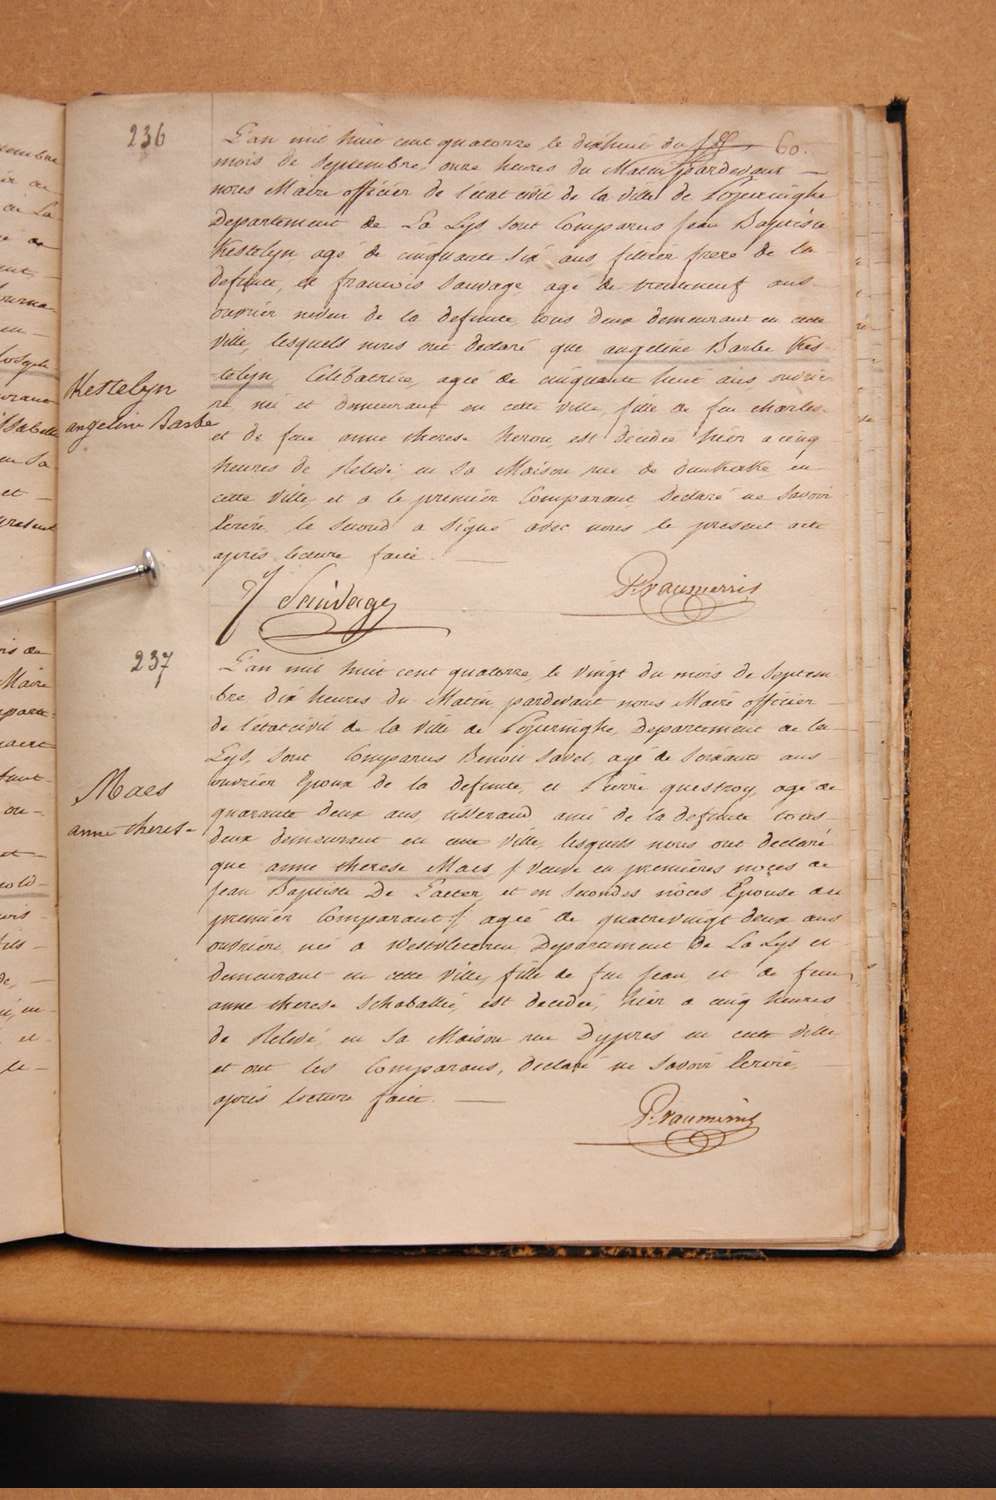 236
L'an mil huit cent quatorze le dixhuit du 60.
mois de Septembre, onze heures du Matin pardevant
nous Maire officier de l'etat civil de la ville de Poperinghe
Departement de La Lys sont Comparus Jean Baptiste
Kestelyn agé de cinquante six ans, filtier frere de la
defunte, et francois Sauvage agé de trenteneuf ans
ouvrier neveu de la defunte, tous deux demeurant en cette
ville, lesquels nous ont declaré que angeline Barbe Kes-
telyn Celibatrice, agée de cinquante huit ans ouvrie-
re, né et demeurant en cette ville, fille de feu charles
et de feue anne therese heron, est decedée hier a cinq
heures de Relevé en sa Maison rue de dunkerke en
cette ville, et a le premier Comparant, Declaré ne Savoir
Ecrire le Second a Signé avec nous le present acte
après lecture faite.
Kestelyn
angeline Barbe
Sauvage
237
L'an mil huit cent quatorze, le vingt du mois de Septem
bre dix heures du Matin, pardevant nous Maire officier
de l'etat civil de la ville de Poperinghe, Departement de la
Lys, sont Comparus Benoit Savel, agé de Soixante ans
ouvrier Epoux de la defunte, et Pierre questroy, agé de
quarante deux ans, tisserand, ami de la defunte tous
deux demeurant en cette ville, lesquels nous ont declaré
que anne therese Maes / Veuve en premières noçes de
Jean Baptiste De Gaeter, et en Secondes nôces Epouse du
premier Comparant / agée de quatrevingt deux ans
ouvrière, née a Westvleteren Departement de La Lys et
demeurant en cette ville, fille de feu Jean et de feue
anne therese Schaballié, est decedée, hier a cinq heures
de Relevé, en sa Maison rue Dypres en cette ville
et ont les Comparans, declaré ne Savoir Ecrire,
après lecture faite.
Maes
anne therese